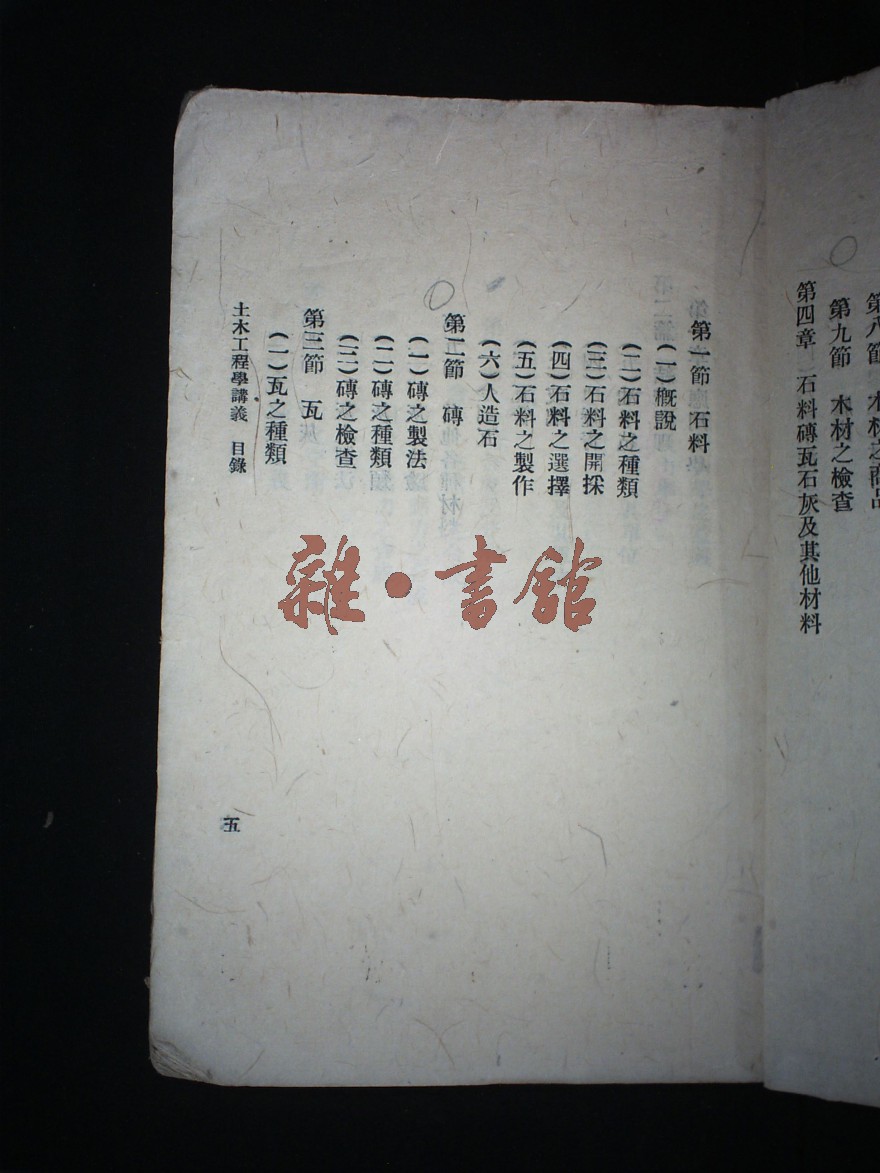 第八節　木材之商品
第九節　木材之檢查
第四章　石料磚瓦石灰及其他材料
第一節　石料
（一）概說
（二）石料之種類
（三）石料之開採
（四）石料之選擇
（五）石料之製作
（六）人造石
第二節　磚
（一）磚之製法
（二）磚之種類
（三）磚之檢查
第三節　瓦
（一）瓦之種類
土木工程學講義　目錄
五
雜·書館